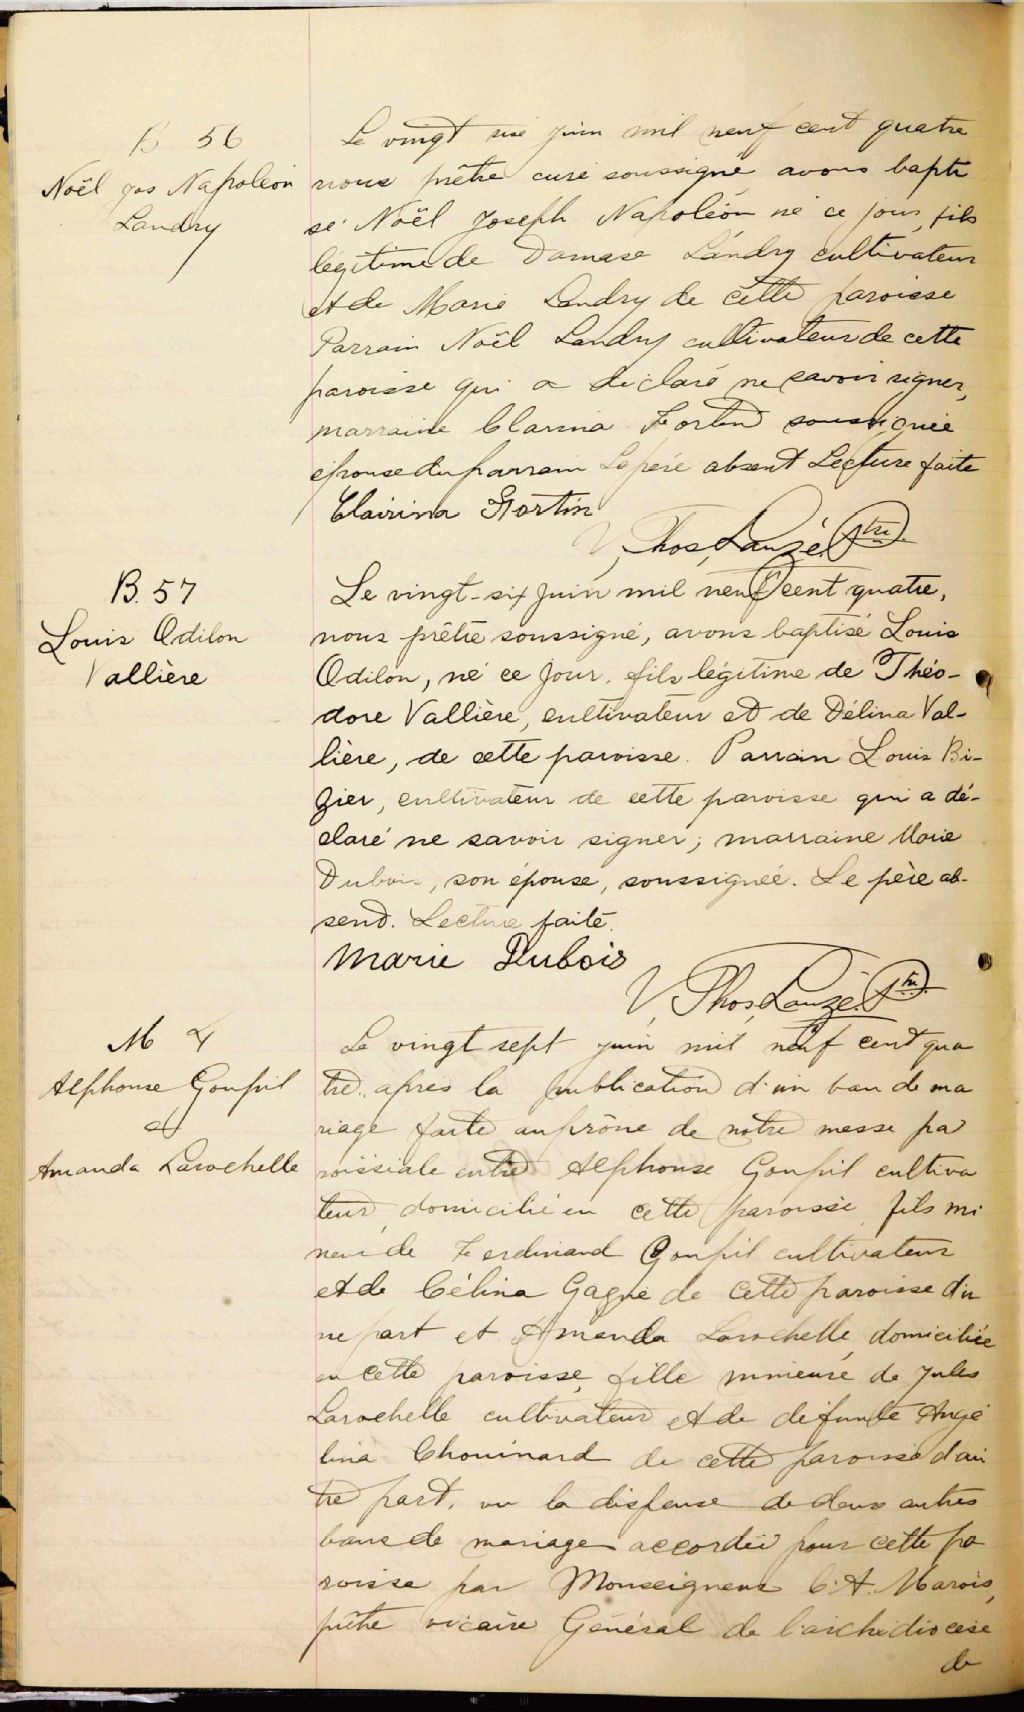 B 56
Noël Jos Napoléon
Landry
Le vingt six juin mil neuf cent quatre
nous prêtre curé soussigné avons bapti
sé Noël Joseph Napoléon né ce jour, fils
légitime de Damase Landry cultivateur
et de Marie Landry de cette paroisse
Parrain Noël Landry cultivateur de cette
paroisse qui a déclaré ne savoir signer,
marraine Clarina Fortin soussignée
épouse du parrain Le père absent Lecture faite
Clairina Fortin
V. Thos, Lauzé. Ptre
B. 57
Louis Odilon
Vallière
Le vingt-six juin mil neuf cent quatre,
nous prêtre soussigné, avons baptisé Louis
Odilon, né ce jour, fils légitime de Théo-
dore Vallière, cultivateur et de Délina Val-
lière, de cette paroisse. Parrain Louis Bi-
zier, cultivateur de cette paroisse qui a dé-
claré ne savoir signer; marraine Marie
Dubois, son épouse, soussignée. Le père ab-
sent. Lecture faite.
Marie Dubois
V. Thos, Lauzé. Ptre
M 4
Alphonse Goupil
et
Amanda Larochelle
Le vingt sept juin mil neuf cent qua
tre, après la publication d'un ban de ma
riage faite au prône de notre messe pa
roissiale entre Alphonse Goupil cultiva
teur, domicilié en cette paroisse, fils mi
neur de Ferdinand Goupil cultivateur
et de Célina Gagné de cette paroisse d'u
ne part et Amanda Larochelle, domiciliée
en cette paroisse, fille mineure de Jules
Larochelle cultivateur et de défunte Angé
lina Chouinard de cette paroisse d'au
tre part, vu la dispense de deux autres
bans de mariage accordée pour cette pa
roisse par Monseigneur C. A. Marois,
prêtre vicaire Général de l'archidiocèse
de